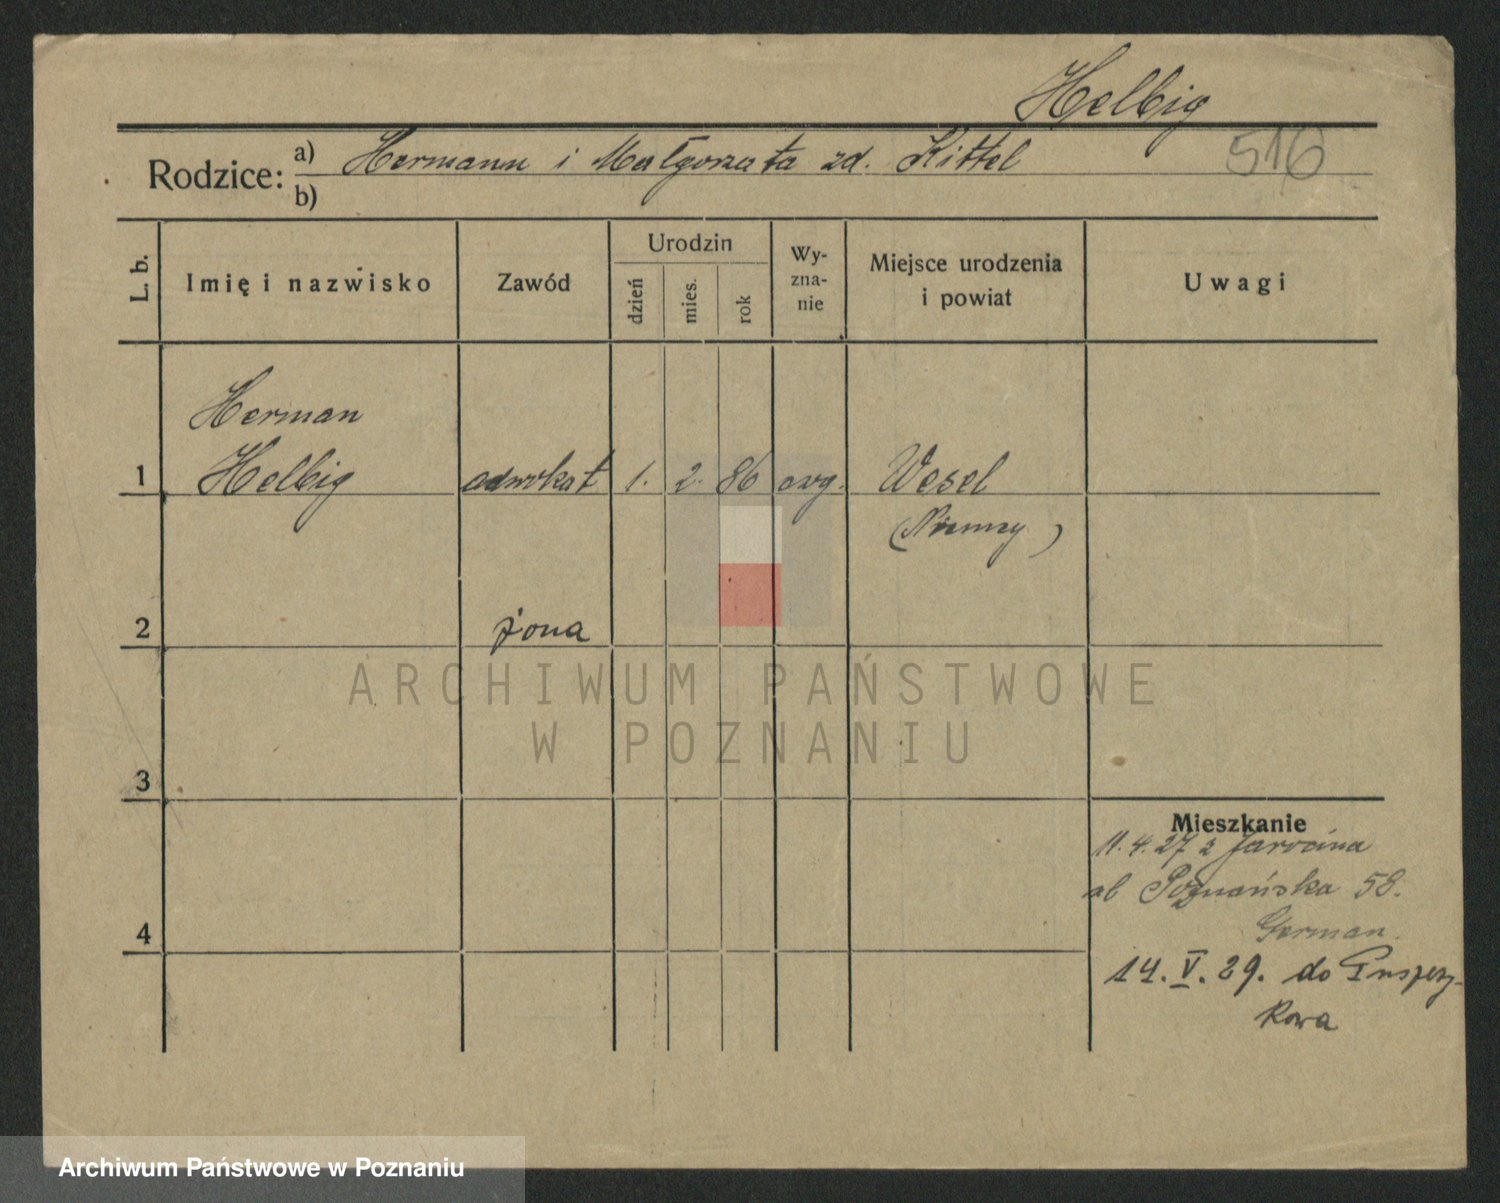 Helbig
516
Rodzice: a) Hermann i Małgorzata zd. Kittel
b)
L. b. Imię i nazwisko Zawód Urodzin dzień mies. rok Wy-zna-nie Miejsce urodzenia i powiat Uwagi
Herman
1 Helbig adwokat 1. 2. 86 ewg. Wesel
(Niemcy)
2 żona
ARCHIWUM PAŃSTWOWE
W POZNANIU
3
Mieszkanie
11.4.27 z Jarocina
Poznańska 58.
4 German
14. V. 29. do
Archiwum Państwowe w Poznaniu